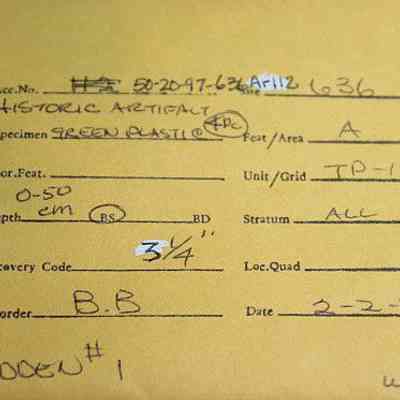 cc.No. 50-20-97-636 A-112 636
HISTORIC ARTIFACT
pecimen GREEN PLASTIC 4PC Feat/Area A
or.Feat. Unit/Grid TP-1
0-50
epth cm BS BD Stratum ALL
3 1/4"
covery Code Loc.Quad
order B.B Date 2-2-
DDEN #1